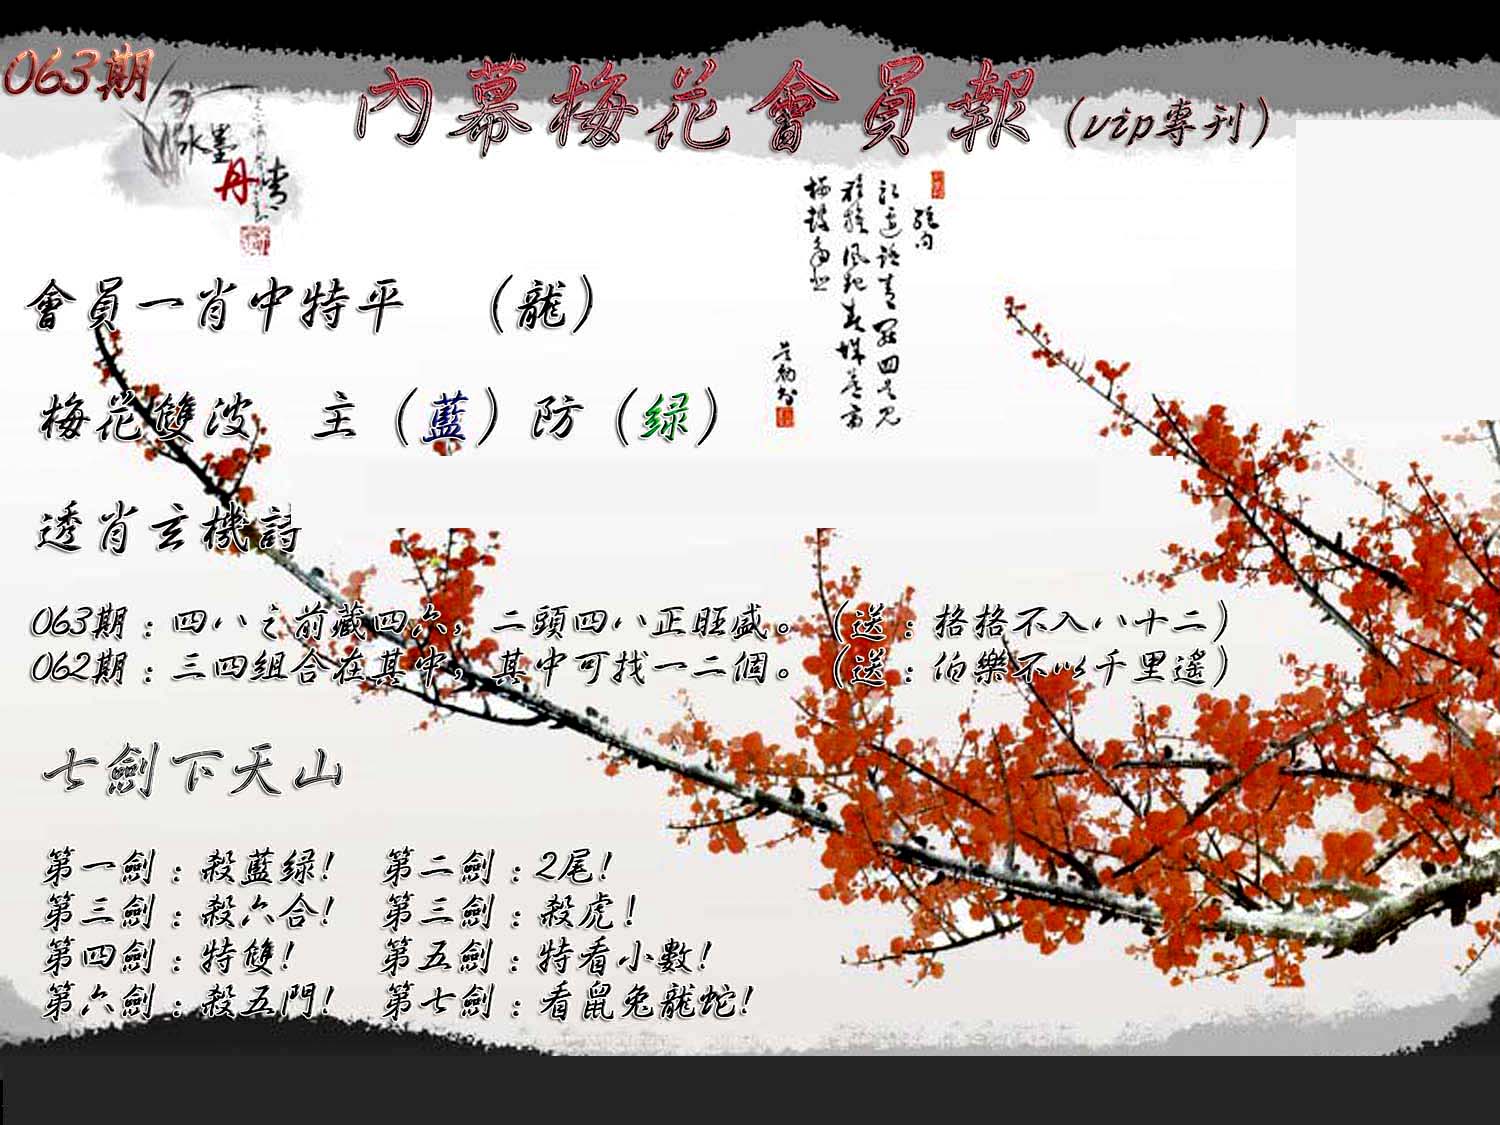 063期
內幕梅花會員報(vip專刊)
水墨
丹青
會員一肖中特平 (龍)
梅花雙波 主(藍)防(绿)
透肖玄機詩
063期:四八之前藏四六,二頭四八正旺盛。(送:格格不入八十二)
062期:三四組合在其中,其中可找一二個。(送:伯樂不以千里遙)
七劍下天山
第一劍:殺藍绿! 第二劍:2尾!
第三劍:殺六合! 第三劍:殺虎!
第四劍:特雙! 第五劍:特看小數!
第六劍:殺五門! 第七劍:看鼠兔龍蛇!